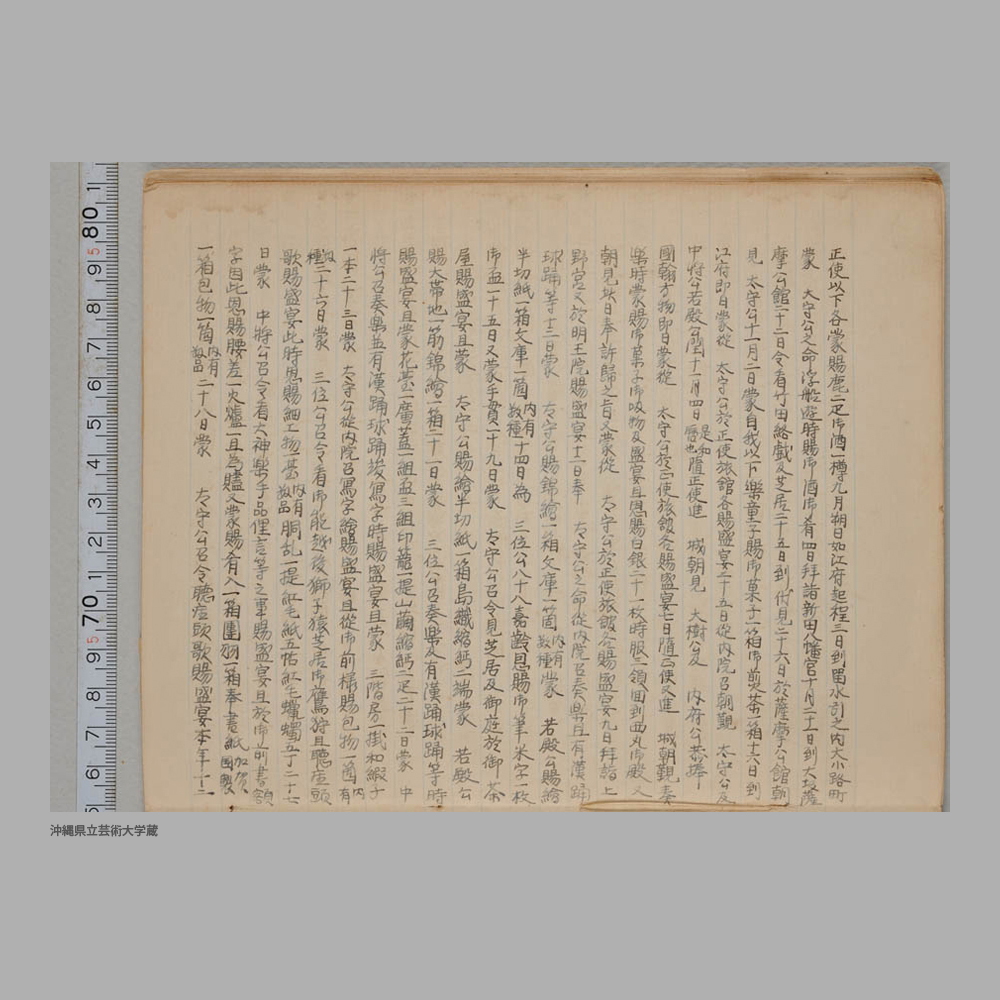 正使以下各蒙賜鹿二疋御酒一樽九月朔日如江府起程三日到聞水引之内大小路町
蒙　大守公之命浮舩遊時賜御酒御肴四日拜詣新田八幡宮十月二十一日到大坂薩
摩公館二十二日令看竹田絡戯及芝居二十五日到伏見二十六日於薩摩公館朝
見　太守公十一月二日蒙自我以下樂童子賜御菓子一箱御煎茶一箱十六日到
江府即日蒙從　太守公於正使旅館各賜盛宴二十五日從内院召朝覲　太守公及
中将公若殿公閏十一月四日是和暦也隨正使進　城朝見　大樹公及　内府公恭捧
國翰方物即日蒙從　太守公於正使旅館各賜盛宴七日隨正使又進　城朝覲奏
樂時蒙賜御菓子御吸物及盛宴且恩賜白銀二十一枚時服二領回到西丸御殿又
朝見此日奉許歸之旨又蒙從　太守公於正使旅館各賜盛宴九日拜詣上
野宮又於明王院賜盛宴十二日奉　太守公之命從内院召奏樂且有漢踊
球踊等十三日蒙　太守公賜錦繪一箱文庫一箇内有数種蒙　若殿公賜繪
半切紙一箱文庫一箇内有数種十四日為　三位公八十八嘉齡恩賜御筆米字一枚
御盃一十五日又蒙手賞一十九日蒙　太守公召令見芝居及御庭於御茶
屋賜盛宴且蒙　太守公賜繪半切紙一箱島纖縮緬一端蒙　若殿公
賜大帯地一筋錦繪一箱二十一日蒙　三位公召奏樂及有漢踊球踊等時
賜盛宴且蒙花臺一廣蓋一組盃三組印籠一提山繭縮緬一疋二十二日蒙　中
将公召奏樂並有漢踊球踊竣寫字時賜盛宴且蒙　三階房一掛和緞子
一本二十三日蒙　太守公從内院召寫字繪賜盛宴且從御前様賜包物一箇内有
数種二十六日蒙　三位公召令看御能越後獅子猿芝居御鷹狩且聴座頭
歌賜盛宴此時恩賜細工物基内有数品胴乱一提紅毛紙五帖紅毛蠟燭五丁二十七
日蒙　中将公召令看大神樂手品俚言等之事賜盛宴且於御前書額
字因此恩賜腰差一火爐一且為贐又蒙賜肴入一箱團扇一箱奉書紙加賀國製
一箱包物一箇内有数品二十八日蒙　太守公召令聴座頭歌賜盛宴本年十二
沖縄県立芸術大学蔵